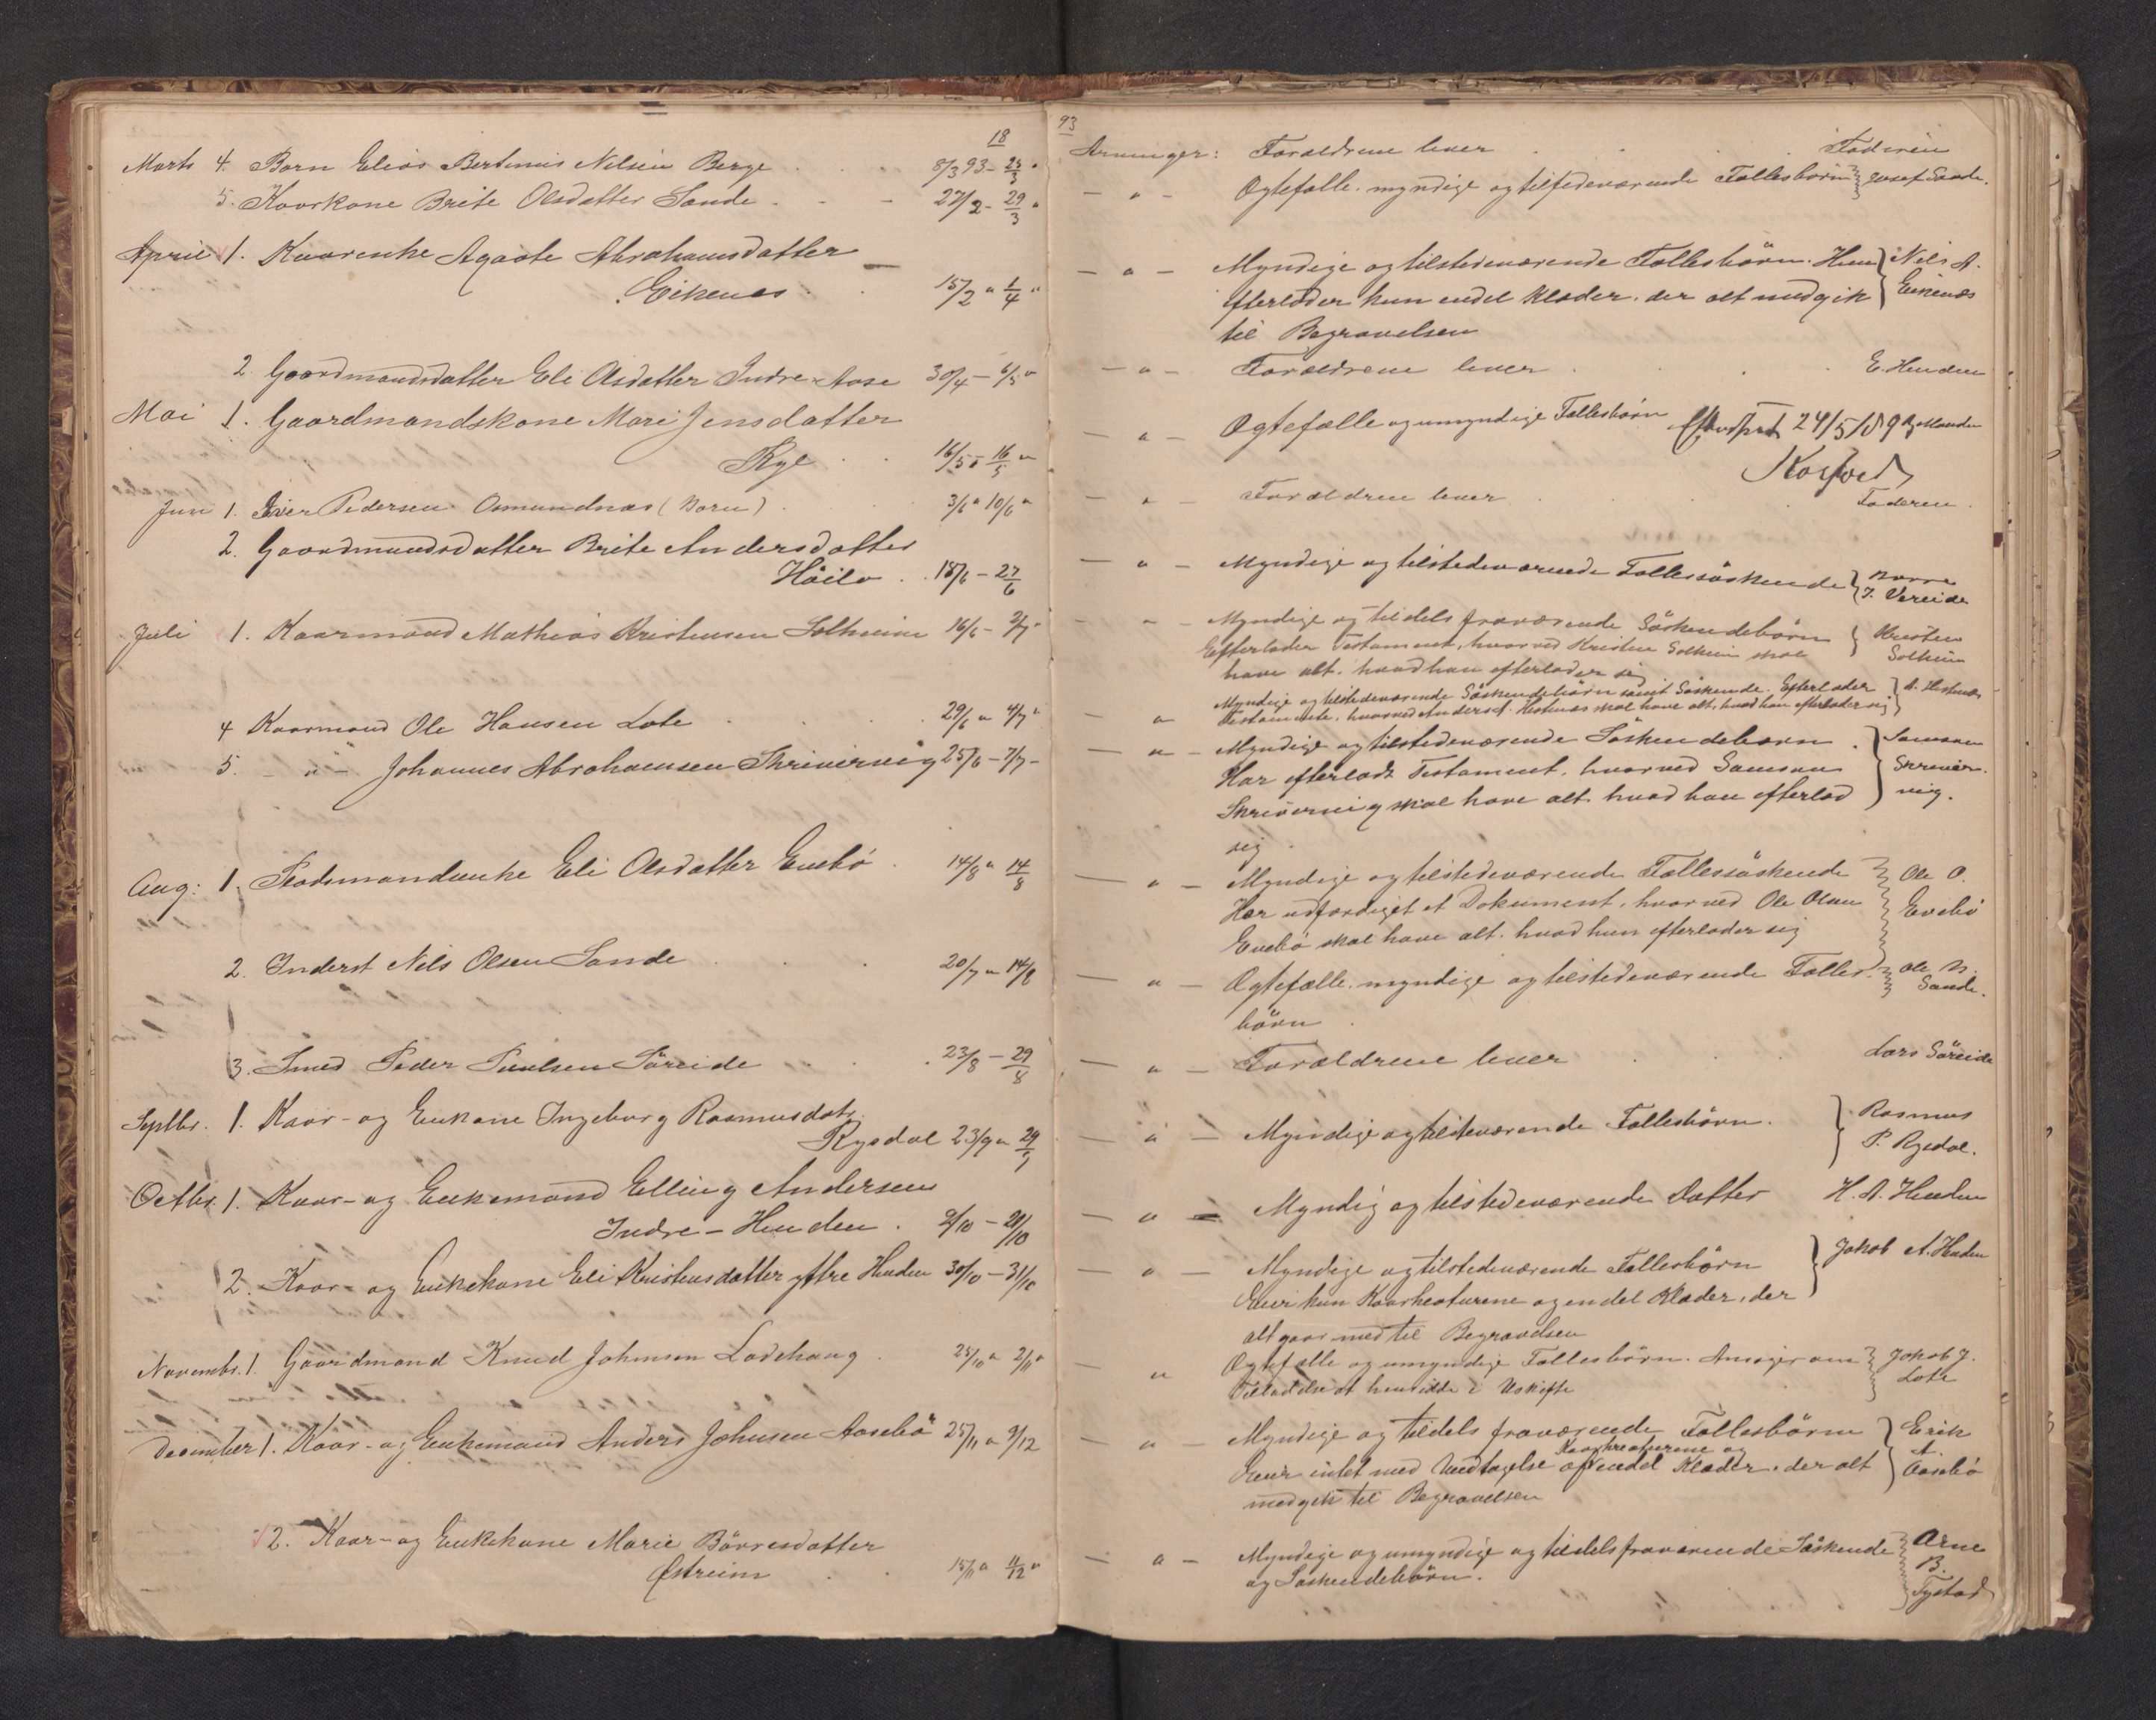 18
Marts 4. Barn Elias Bertinius Nilsen Berge 8/3 93 – 25/3 "
5. Kaarkone Brite Olsdatter Sande 27/2 – 29/3 "
April 1. Kaarenke Agaate Abrahamsdatter
Eikenæs 15/2 " 1/4 "
2 Gaardmandsdatter Eli Olsdatter Indre-Aase 30/4 – 6/5 "
Mai 1. Gaardmandskone Mari Jensdatter
Rye 16/5 – 16/5 "
Juni 1. Iver Pedersen Osmundnæs (Barn) 3/6 " 10/6 "
2. Gaardmandsdatter Brite Andersdatter
Höilo 18/6 – 27/6
Juli 1. Kaarmand Mathias Kristensen Solheim 16/6 – 2/7 "
4 Kaarmand Ole Hansen Lote 29/6 " 4/7 "
5. – " – Johannes Abrahamsen Skrivervig 25/6 – 7/7 –
Aug: 1. Pladsmandsenke Eli Olsdatter Evebö 14/8 " 14/8
2. Inderst Nils Olsen Sande 20/7 " 14/8
3. Smed Peder Paulsen Söreide 23/8 – 29/8
Septbr. 1. Kaar- og Enkekone Ingeborg Rasmusdatr
Rygdal 23/9 " 29/9
Octbr. 1. Kaar- og Enkemand Elling Andersen
Indre-Henden 9/10 – 20/10
2. Kaar- og Enkekone Eli Kristensdatter ytre Henden 30/10 – 31/10
Novembr. 1. Gaardmand Knud Johnsen Ladehaug 25/10 " 2/11 "
December 1. Kaar- og Enkemand Anders Johnsen Aasebö 25/11 " 9/12
2. Kaar- og Enkekone Marie Börresdatter
Østreim 15/11 " 4/12 "
93
Arvinger: Forældrene lever Faderen
– " – Ogtefælle, myndige og tilstedeværende Fællesbörn Josef Sande.
– " – Myndige og tilstedeværende Fællesbörn. Hun Nils A.
efterlader kun endel Klæder, der alt medgik Eikenæs
til Begravelsen
– " – Forældrene lever E. Henden
– " – Ogtefælle og umyndige Fællesbörn 24/5 Manden
– " – Forældrene lever Faderen
– " – Myndige og tilstedeværende Fællessöskende
J. Vereide
– " – Myndige og tildels fraværende Söskendebörn Kristen
Efterlader Testament, hvorved Kristen Solheim skal Solheim
have alt, hvad han efterlader sig
– " – Myndige og tilstedeværende Söskendebörn samt Söskende. Efterlader A. Hestnæs
Testamente, hvorved Anders A. Hestnæs skal have alt, hvad han efterlader sig
– " – Myndige og tilstedeværende Söskendebarn. Samson
Har efterladt Testament, hvorved Samson Skriver-
Skrivervig skal have alt, hvad han efterlod vig.
sig.
– " – Myndige og tilstedeværende Fællessöskende Ole O.
Har udfærdiget et Dokument, hvorved Ole Olsen Evebö
Evebö skal have alt, hvad hun efterlader sig
– " – Ogtefælle, myndige og tilstedeværende Fælles- Ole N.
börn Sande.
– " – Forældrene lever Lars Söreide
– " – Myndige og tilsteværende Fællesbörn. Rasmus
P. Rygdal.
– " – Myndig og tilstedeværende Datter H. A. Henden
– " – Myndige og tilstedeværende Fællesbörn Jakob A. Henden
Eier kun Kaarkreaturene og endel Klæder, der
alt gaar med til Begravelsen
" Ogtefælle og umyndige Fællesbörn. Ansöger om Jakob J.
Tilladelse at hensidde i Uskifte Lote
– " – Myndige og tildels fraværende Fællesbörn Erik
Kaarkreaturene og A.
Eier intet med Undtagelse af endel Klæder, der alt Aasebö
medgik til Begravelsen
– " – Myndige og umyndige og tildels fraværende Söskende Arne
og Söskendebörn. B.
Tystad